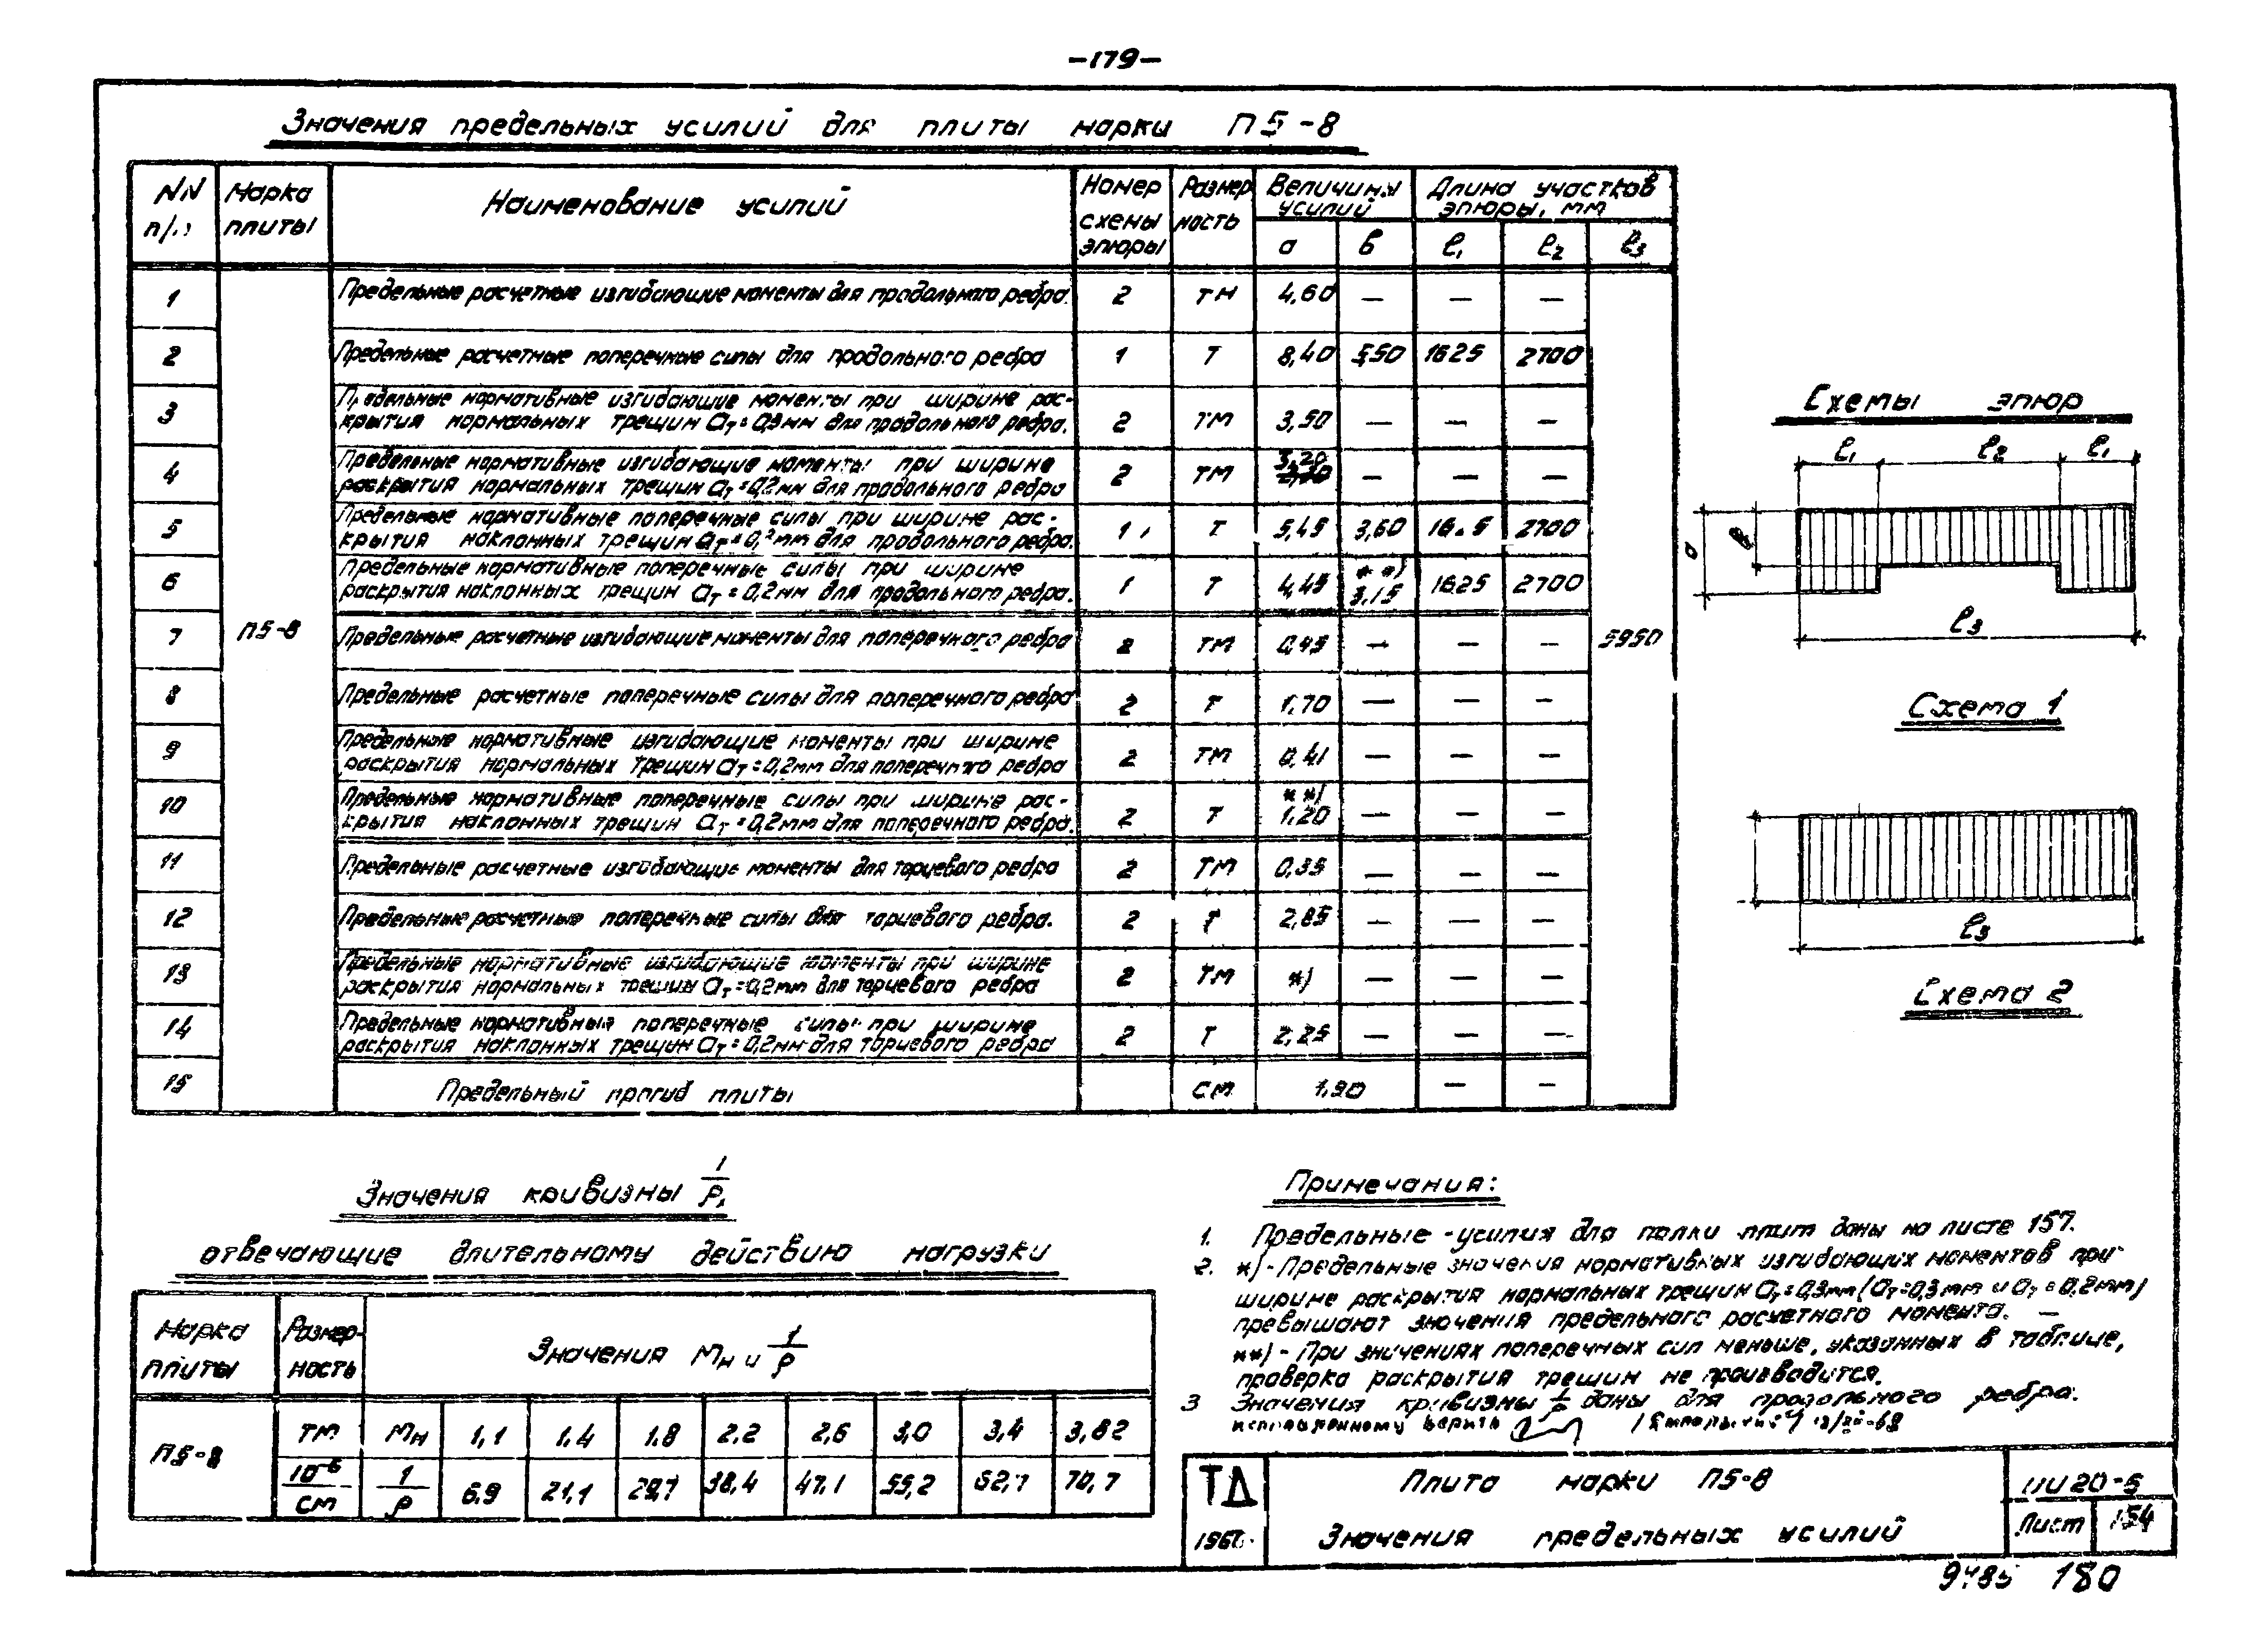 –179–
Значения предельных усилий для плиты марки П5-8
NN п/п
Марка плиты
Наименование усилий
Номер схемы эпюры
Размер ность
Величины усилий
Длина участков эпюры, мм
а б ℓ1 ℓ2 ℓ3
1 Предельные расчетные изгибающие моменты для продольного ребра. 2 тм 4,60 — — —
2 Предельные расчетные поперечные силы для продольного ребра 1 т 8,40 5,50 1625 2700
3 Предельные нормативные изгибающие моменты при ширине рас-
крытия нормальных трещин aт = 0,3 мм для продольного ребра. 2 тм 3,50 — — —
4 Предельные нормативные изгибающие моменты при ширине
раскрытия нормальных трещин aт = 0,2 мм для продольного ребра 2 тм 3,20 — — —
5 Предельные нормативные поперечные силы при ширине рас-
крытия наклонных трещин aт = 0, мм для продольного ребра. 1 т 5,45 3,60 2700
6 Предельные нормативные поперечные силы при ширине
раскрытия наклонных трещин aт = 0,2 мм для продольного ребра. 1 т 4,45 **) 3,15 1625 2700
7 П5-8 Предельные расчетные изгибающие моменты для поперечного ребра 2 тм 0,45 — — — 5950
8 Предельные расчетные поперечные силы для поперечного ребра 2 т 1,70 — — —
9 Предельные нормативные изгибающие моменты при ширине
раскрытия нормальных трещин aт = 0,2 мм для поперечного ребра 2 тм 0,41 — — —
10 Предельные нормативные поперечные силы при ширине рас-
крытия наклонных трещин aт = 0,2 мм для поперечного ребра. 2 т **) 1,20 — — —
11 Предельные расчетные изгибающие моменты для торцевого ребра 2 тм 0,35 — — —
12 Предельные расчетные поперечные силы для торцевого ребра. 2 т 2,85 — — —
13 Предельные нормативные изгибающие моменты при ширине
раскрытия нормальных трещин aт = 0,2 мм для торцевого ребра 2 тм *) — — —
14 Предельные нормативные поперечные силы при ширине
раскрытия наклонных трещин aт = 0,2 мм для торцевого ребра 2 т 2,25 — — —
15 Предельный прогиб плиты см 1,90 — —
Схемы эпюр
ℓ1 ℓ2 ℓ1
а б
ℓ3
Схема 1
ℓ3
Схема 2
Значения кривизны 1/ρ,
отвечающие длительному действию нагрузки
Марка плиты
Размер- ность
Значения Mн и 1/ρ
П5-8
тм Mн 1,1 1,4 1,8 2,2 2,6 3,0 3,4 3,82
10⁻⁶/см 1/ρ 6,9 21,1 29,7 38,4 47,1 55,2 62,7 70,7
Примечания:
1. Предельные усилия для полки плит даны на листе 157.
2. *) - Предельные значения нормативных изгибающих моментов при
ширине раскрытия нормальных трещин aт = 0,3 мм (aт = 0,3 мм и aт = 0,2 мм)
превышают значения предельного расчетного момента. —
**) - При значениях поперечных сил меньше, указанных в таблице,
проверка раскрытия трещин не производится.
3 Значения кривизны 1/ρ даны для продольного ребра.
исправленному верить
ТД
Плита марки П5-8
Значения предельных усилий
ИИ 20-5
Лист 154
9485 180